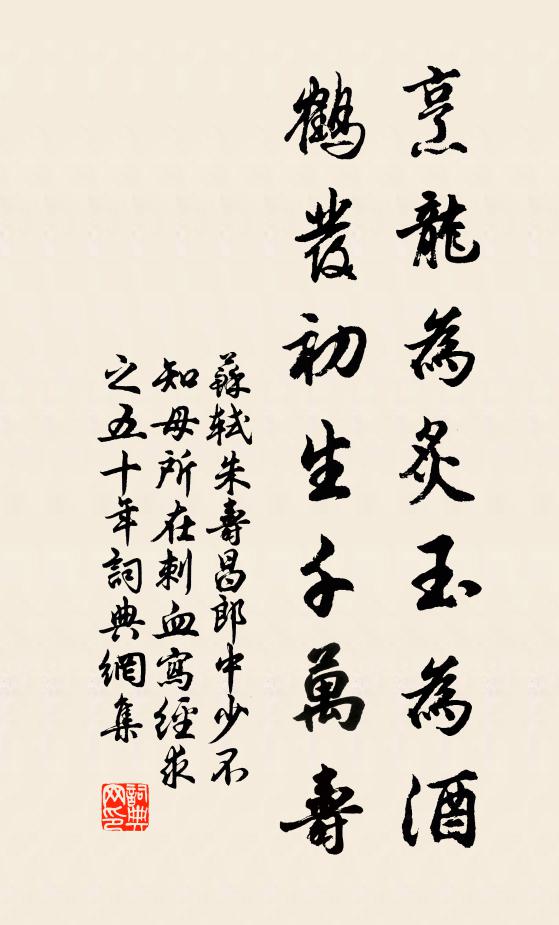 烹龍為炙玉為酒
鶴發初生千萬壽
蘇軾朱壽昌郎中少不
知母所在刺血寫經求
之五十年詞典網集
詞典网印